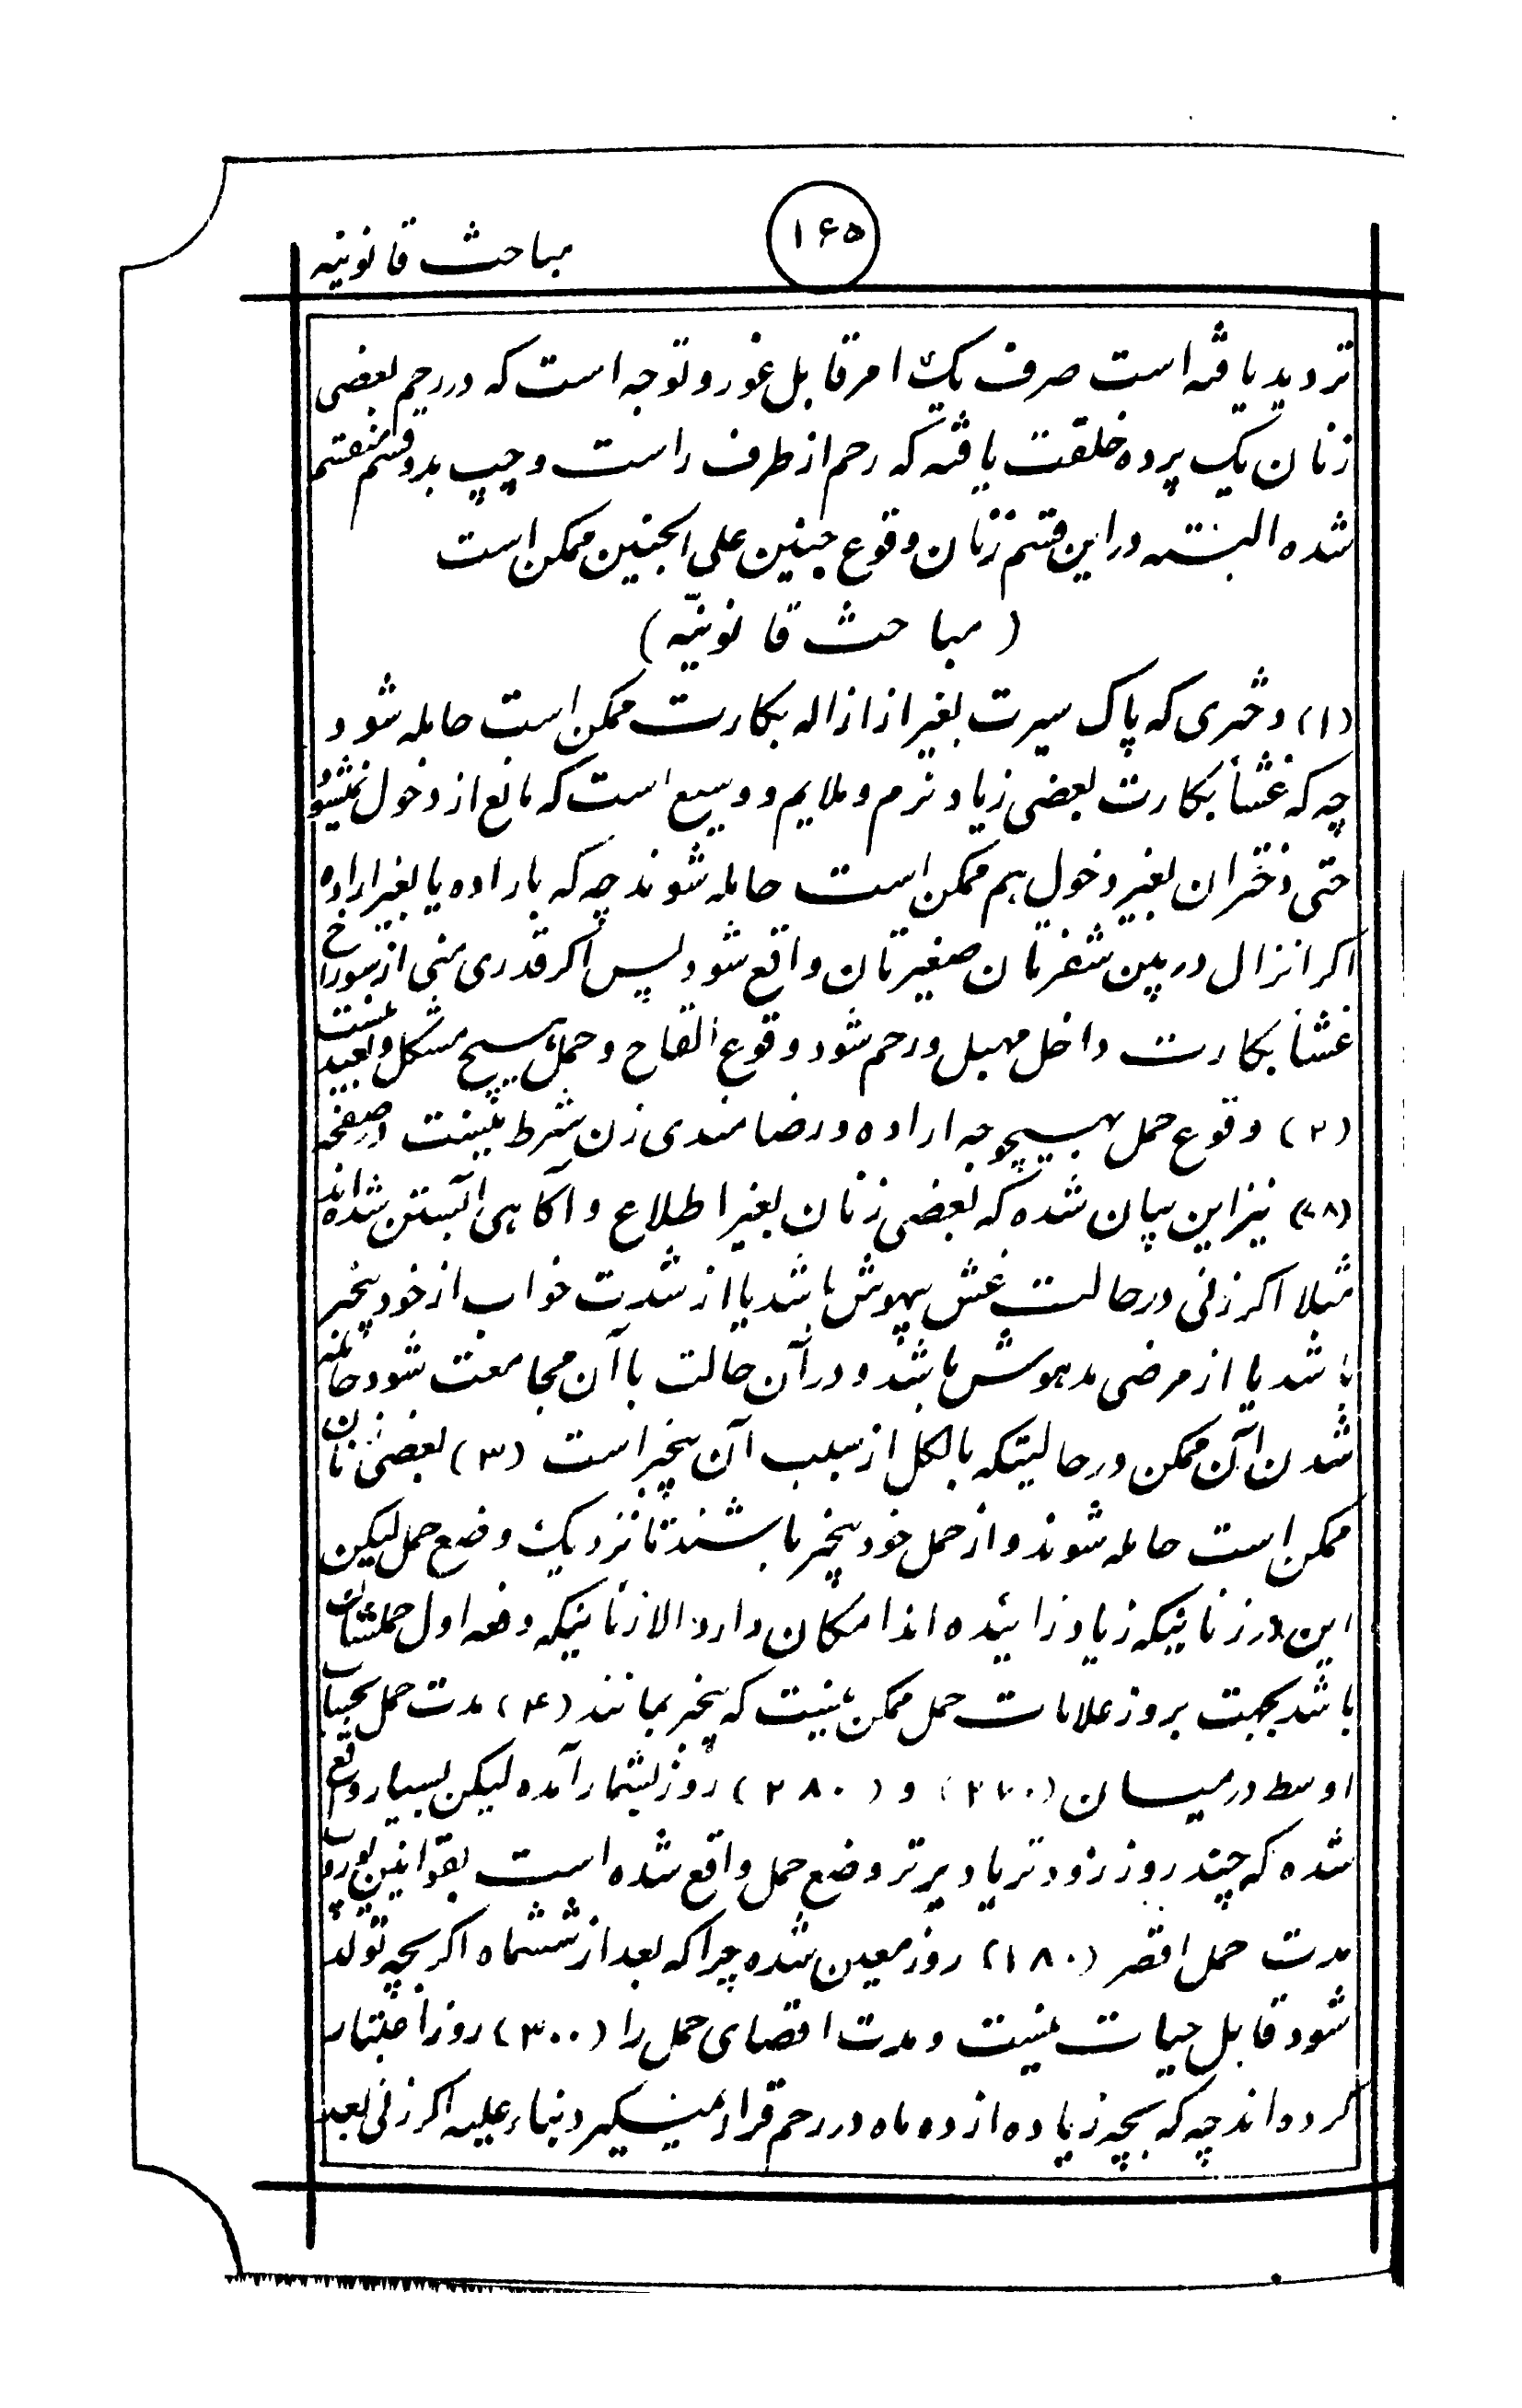 ۱۶۵
مباحث قانونیه
تردید یافته است صرف یک امر قابل غور و توجه است که در رحم بعضی
زنان یک پرده خلقت یافته که رحم از طرف راست و چپ بدو قسم منقسم
شده البته در این قسم زنان وقوع جنین علی الجنین ممکن است
( مباحث قانونیّه )
(۱) دختری که پاک سیرت بغیر از ازاله بکارت ممکن است حامله شود
چه که غشأ بکارت بعضی زیاد نرم و ملایم و وسیع است که مانع از دخول نمیشود
حتی دختران بغیر دخول هم ممکن است حامله شوند چه که باراده یا بغیر اراده
اکر انزال در بین شفرتان صغیرتان واقع شود پس اکر قدری منی از سوراخ
غشأ بکارت داخل مهبل و رحم شود وقوع القاح و حمل هیچ مشکل و بعید نیست
(۲) وقوع حمل بهیچوجه اراده و رضامندی زن شرط نیست در صفحه
(۷۸) نیز این بیان شده که بعضی زنان بغیر اطلاع و آکاهی آبستن شده اند
مثلا اکر زنی در حالت غش بیهوش باشد یا از شدت خواب از خود بیخبر
باشد یا از مرضی مدهوش باشد و در آن حالت با آن مجامعت شود حامله
شدن آن ممکن در حالیتکه بالکل از سبب آن بیخبر است (۳) بعضی زنان
ممکن است حامله شوند و از حمل خود بیخبر باشند تا نزدیک وضع حمل لیکن
این در زنانیکه زیاد زائیده اند امکان دارد الا زنانیکه دفعه اول حملشان
باشد بجهت بروز علامات حمل ممکن نیست که بیخبر بمانند (۴) مدت حمل بحساب
اوسط درمیان (۲۷۰) و (۲۸۰) روز بشمار آمده لیکن بسیار واقع
شده که چند روز زودتر یا دیرتر وضع حمل واقع شده است بقوانین یورپ
مدت حمل اقصر (۱۸۰) روز معین شده چراکه بعد از ششماه اکر بچه تولد
شود قابل حیات نیست و مدت اقصای حمل را (۳۰۰) روز اعتبار
کرده اند چه که بچه زیاده از ده ماه در رحم قرار نمیکیرد بناء علیه اکر زنی بعد